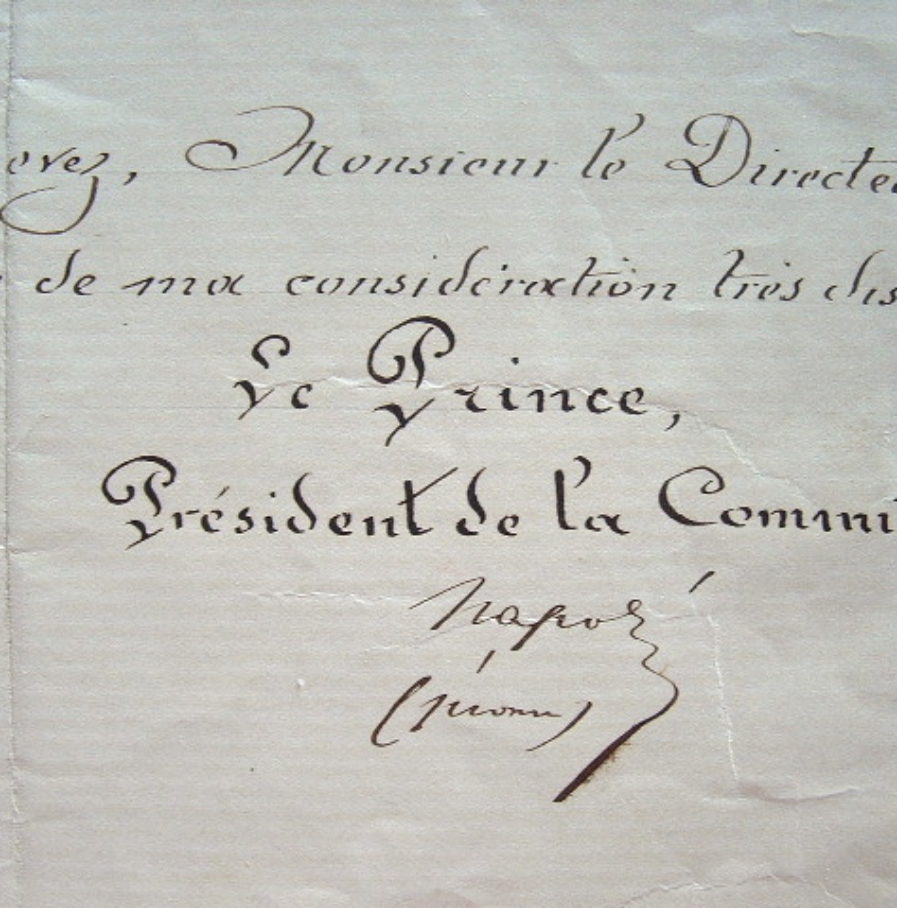 evez, Monsieur le Directe
de ma considération très dis
Le Prince,
Président de la Commi
Napolé
(Jérôme)